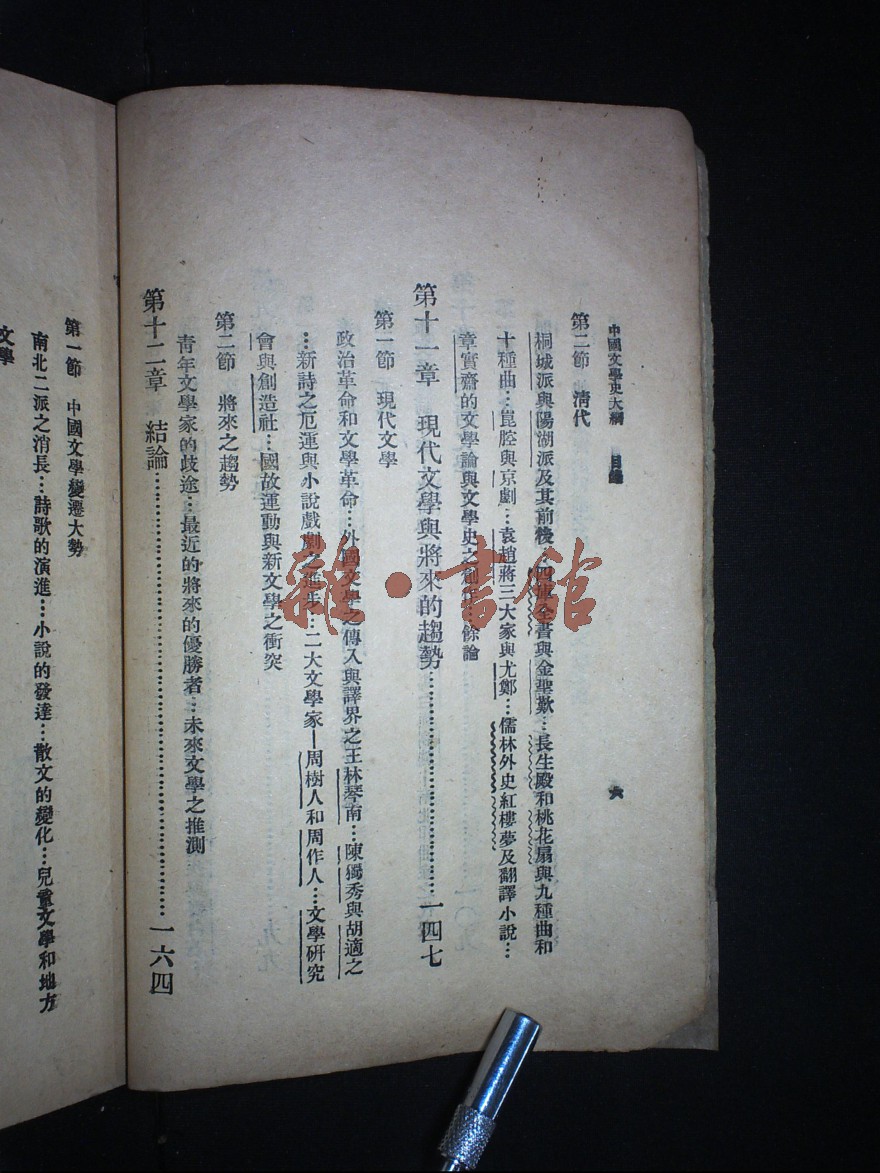 中國文學史大綱　目錄　六
第二節　清代
桐城派與陽湖派及其前後…四庫全書與金聖歎…長生殿和桃花扇與九種曲和
十種曲…崑腔與京劇…袁趙蔣三大家與尤鄭…儒林外史紅樓夢及翻譯小說…
章實齋的文學論與文學史之創作…餘論
第十一章　現代文學與將來的趨勢…………一四七
第一節　現代文學
政治革命和文學革命…外國文學之傳入與譯界之王林琴南…陳獨秀與胡適之
…新詩之厄運與小說戲劇之進步…二大文學家—周樹人和周作人…文學研究
會與創造社…國故運動與新文學之衝突
第二節　將來之趨勢
青年文學家的歧途…最近的將來的優勝者…未來文學之推測
第十二章　結論…………一六四
第一節　中國文學變遷大勢
南北二派之消長…詩歌的演進…小說的發達…散文的變化…兒童文學和地方
文學
雜·書館